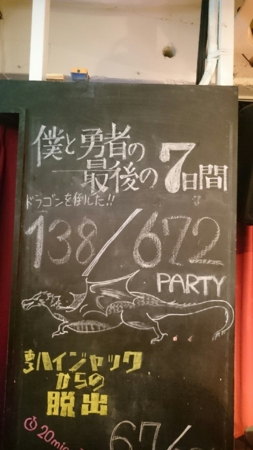 僕と勇者の
最後の7日間
ドラゴンを倒した!!
138/672
PARTY
ハイジャック
からの
脱出
20min
67/